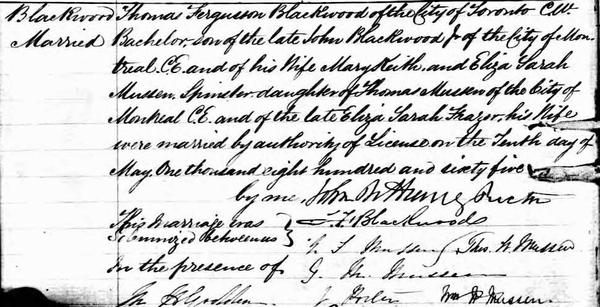 Blackwood Thomas Fergusson Blackwood of the City of Toronto C.W.
Married Bachelor, son of the late John Blackwood Jr of the City of Mon-
treal. C.E. and of his Wife Mary Ruth, and Eliza Sarah
Mussen, Spinster, daughter of Thomas Mussen of the City of
Montreal C.E. and of the late Eliza Sarah Frazer, his Wife
were married by authority of License on the Tenth day of
May, One thousand eight hundred and sixty five
by me,
This marriage was T. F. Blackwood
Solemnized between us Mussen Thos. W. Mussen
In the presence of G. M. Mussen
Wm H Mussen